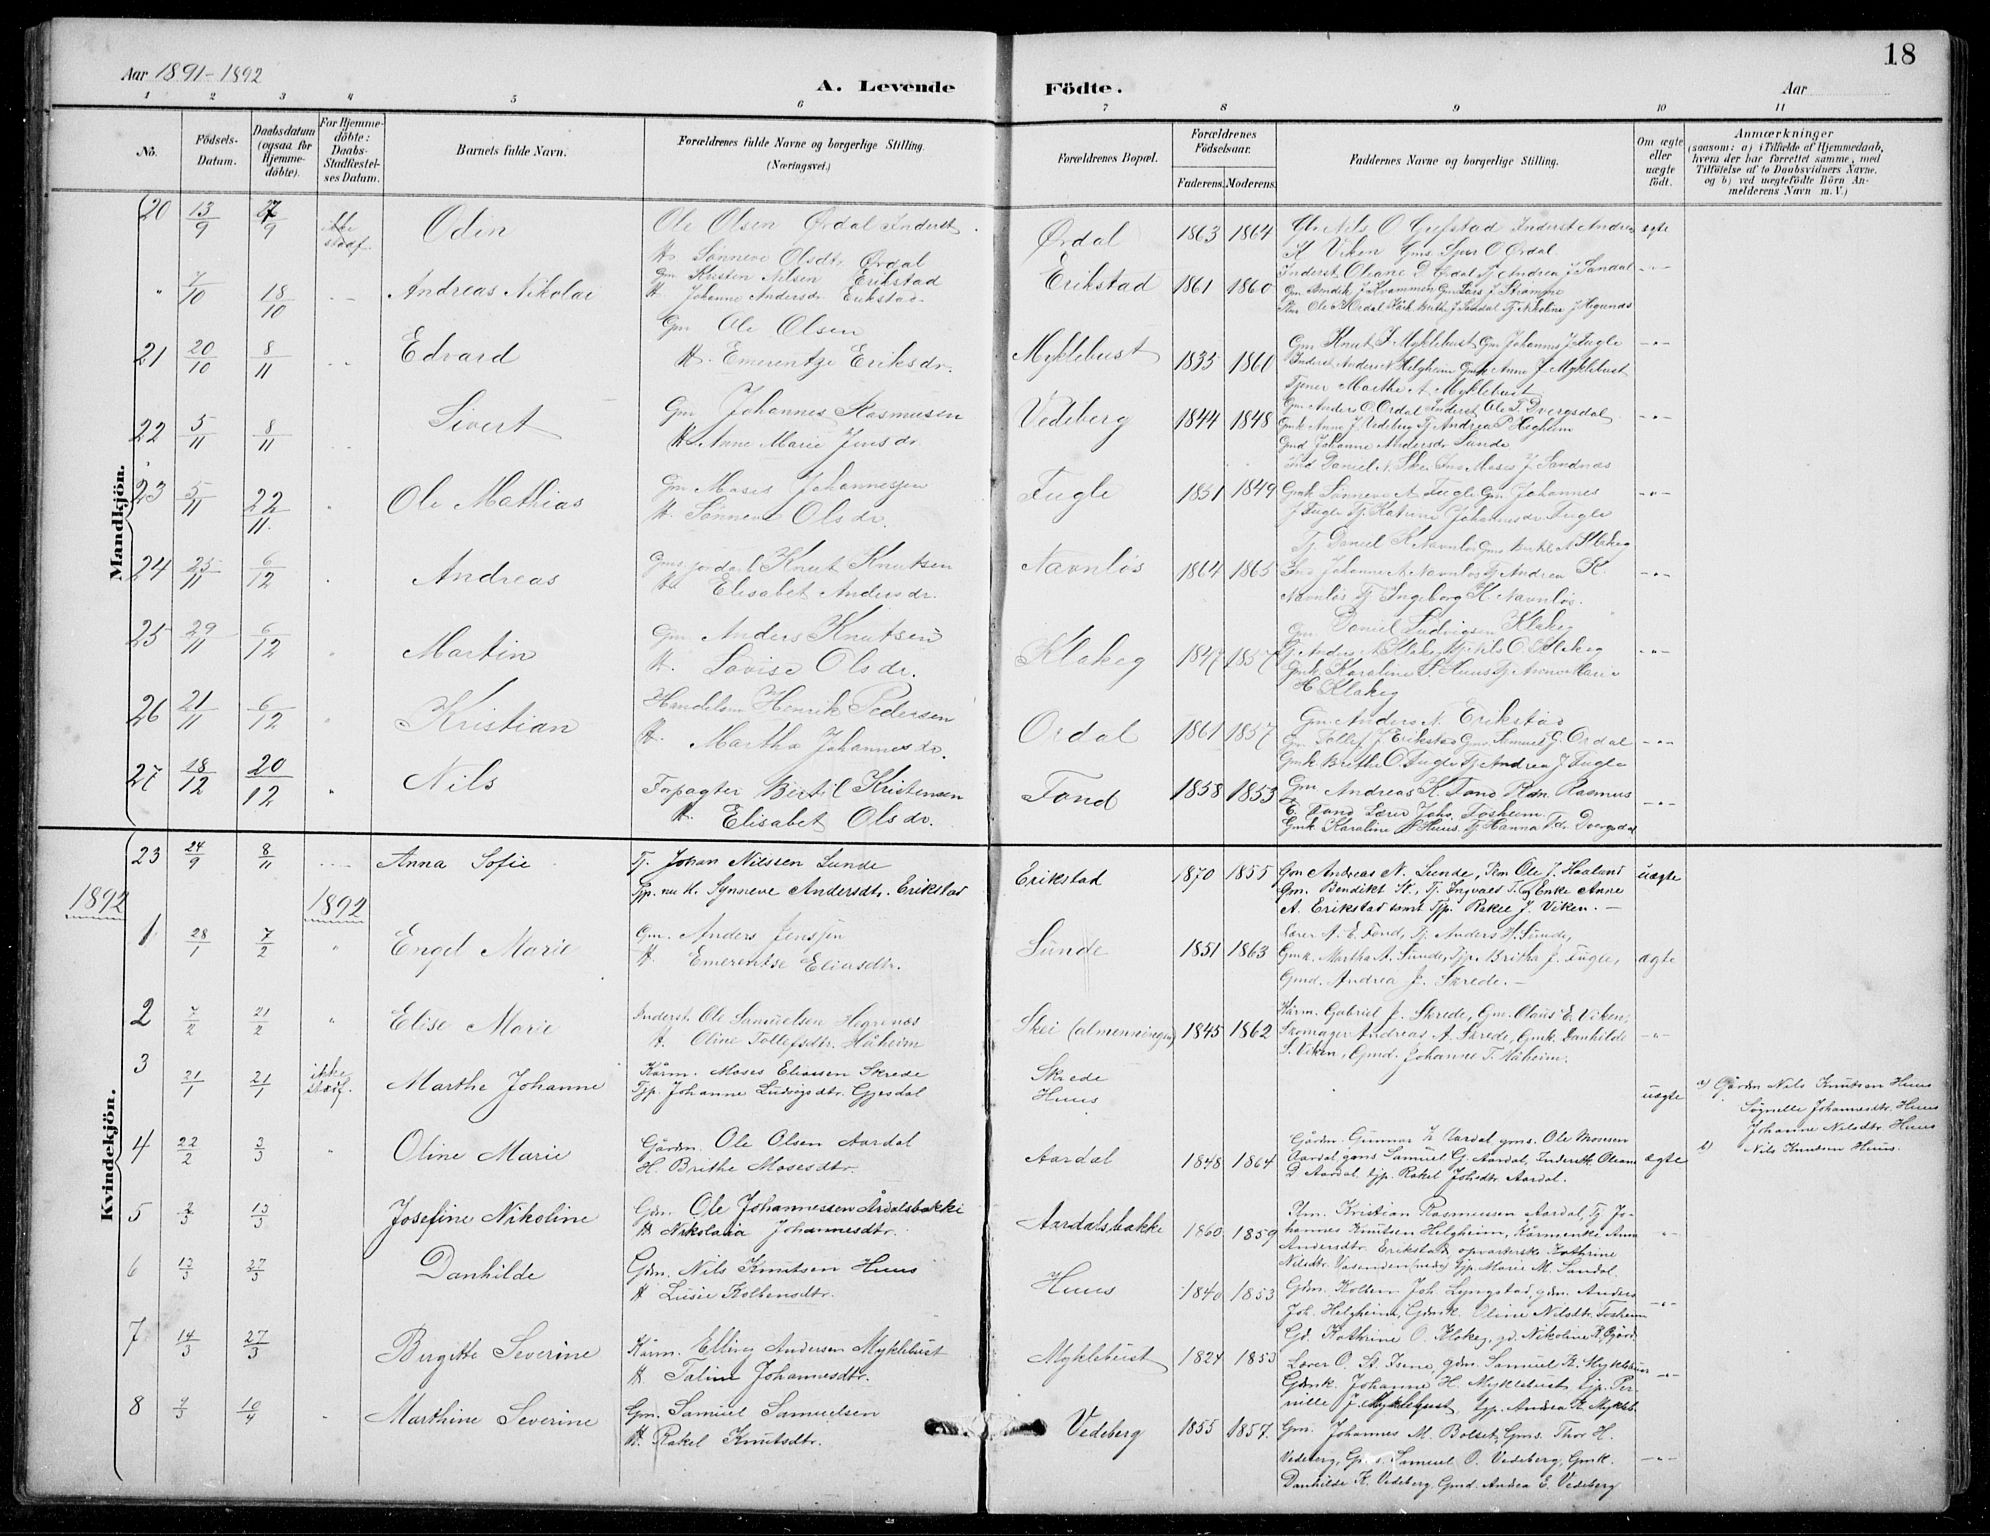 18
Aar 1891-1892
A. Levende Födte.
Aar
1 2 3 4 5 6 7 8 9 10 11
No.
Födsels-Datum.
Daabsdatum (ogsaa for Hjemmedöbte).
For Hjemmedöbte: Daabs-Stadfæstelses Datum.
Barnets fulde Navn.
Forældrenes fulde Navne og borgerlige Stilling. (Næringsvei.)
Forældrenes Bopæl.
Forældrenes Födselsaar.
Faderens. Moderens.
Faddernes Navne og borgerlige Stilling.
Om ægte eller uægte födt.
Anmærkninger (saasom: a) i Tilfælde af Hjemmedaab, hvem der har forrettet samme, med Tilföielse af to Daabsvidners Navne, og b) ved uægtefödte Börn Anmelderens Navn m. V.)
Mandkjön.
20 13/9 27/9 ikke stadf. Odin
Ole Olsen Ørdal Inderst
H. Sønneve Olsdtr Ørdal
Ørdal 1863 1864
Inderst Andrea
K Viken Gms Sjur O Ordal
ægte
" 7/10 18/10 Andreas Nikolai
Gm Kristen Nilsen Erikstad
H. Johanne Andersdr Erikstad
Erikstad 1861 1860
Inderst Oliane D Ørdal Tj Andrea J Sandal
21 20/10 8/11 Edvard
Gm Ole Olsen
H. Emerentze Eriksdr.
Myklebust 1835 1860
Gm Knut J Myklebust Gm Johannes J Fugle
Inderst Anders N Helgheim Gmk Anne J Myklebust
Marthe A Myklebust
22 5/11 8/11 Sivert
Gm Johannes Rasmusen
H. Anne Marie Jensdr
Vedeberg 1844 1848
Gm Anders O Ordal Inderst Ole T Dvergsdal
Gmk Anne J Vedeberg Tj Andrea P Hegheim
Gmd Johanne Andersdr Sunde
23 5/11 22/11. Ole Mathias
Gm Moses Johannesjen
H. Sønneve Olsdr.
Fugle 1851 1849
Ind Daniel N Skei Ind Moses J Sandnæs
Gmk Sønneve A Fugle Gm Johannes
J Fugle Tj Katrine Johannesdr Fugle
24 25/11 6/12 Andreas
Knut Knutsen
H. Elisabet Andersdr.
Navnløs 1864 1865
Tj Daniel K Navnløs
Ind Johanne A Navnløs Tj Andrea K.
Navnløs Tj Ingeborg K Navnløs.
25 29/11 6/12 Martin
Gm Anders Knutsen
H. Lovise Olsdr.
Klakeg 1847 1857
Gm Daniel Ludvigsen Klakeg
Tj Anders A Klakeg Tj Nils O Klakeg
Gmk Karoline S. Huus Tj Anne Marie
H Klakeg
26 21/11 6/12 Kristian
Handelsm Henrik Pedersen
H. Martha Johannesdr.
Ordal 1861 1857
Gm Anders N. Erikstad
Gm Tollef J Erikstad Gms Samuel G. Ordal
Gmk Brithe O Fugle Tj Andrea J Fugle
27 18/12 20/12 Nils
Forpagter Bertil Kristensen
H. Elisabet Olsdr.
Fond 1858 1853
Gm Andreas K. Fond Rasmus
E. Fond Lærer Johs. Fosheim
Gmk Karoline S Huus, Tj Hanna Dvergsdal
Kvindekjön.
23 24/9 8/11 Anna Sofie
Tj. Johan Nilssen Sunde
Tjp. nu H. Synneve Andersdtr. Erikstad
Erikstad 1870 1855
Gm Andreas N. Sunde, Ole J. Haalund
Gm. Bendikt St., Tj. Ingvald T. Enke Anne
A. Erikstad samt Tjp. Rakel J. Viken.
uægte
1892 1892
1 28/1 7/2 Engel Marie
Gm. Anders Jensjen
H. Emerentse Eliasdtr.
Sunde 1851 1863
Lærer A. E. Fond, Tj. Anders H. Sunde,
Gmk. Martha A. Sunde, Tjp. Britha J. Fugle,
Gmd. Andrea J. Skrede.
ægte
2 7/2 21/2 Elise Marie
Inderst. Ole Samuelsen Hegrenæs
H. Oline Tollefsdtr. Håheim
Skei (almenningen) 1845 1862
Kårm. Gabriel J. Skrede, Gm. Olaus E. Viken,
Skomager Andreas A. Skrede, Gmk. Danhilde
S. Viken, Gmd. Johanne T. Håheim.
3 21/1 21/1 ikke stadf. Marthe Johanne
Kårm. Moses Eliassen Skrede
Tjp. Johanne Ludvigsdtr. Gjesdal
Skrede
Huus
uægte
a) Gårdm Nils Knutsen Huus
Søgnelle Johannesdtr. Huus
Johanne Nilsdtr Huus
b) Nils Knutsen Huus.
4 22/2 3/3 Oline Marie
Gårdm. Ole Olsen Aardal
H. Brithe Mosesdtr.
Aardal 1848 1864
Gårdm. Gunnar L. Aardal, gms. Ole Monsen
Aardal, gms Samuel G. Aardal, Inderstk Oleane
D. Aardal, tjp. Rakel Johsdtr. Aardal.
ægte
5 2/3 13/3 Josefine Nikoline
Gdm. Ole Johannessen Årdalsbakki
H Nikolaia Johannesdtr.
Aardalsbakke 1860 1859
Kristian Rasmussen Aardal, Tj. Jo-
hannes Knutsen Helgheim, Kårmenke Anna
Andersdtr. Erikstad, opvarterske Kathrine
Nilsdtr. Vasenden (nedr) tjp. Marie M. Sandal.
6 13/3 27/3 Danhilde
Gdm. Nils Knutsen Huus
H Lusie Kolbensdtr.
Huus 1840 1853
Gdm. Kolben Joh. Lyngstad, gdm. Anders
Joh. Helgheim, Gdmk. Oline Nilsdtr. Fosheim
Gd. Kathrine O. Klakeg, gd. Nikoline
7 14/3 27/3 Birgitte Severine
Kårm. Elling Andersen Myklebust
H Taline Johannesdtr.
Myklebust 1824 1853
Lærer O. St. Isene, gdm. Samuel K. Myklebust
Gdmk. Johanne H. Myklebust, tjp. Per-
nille J. Myklebust, tjp. Andrea K. Mykleb.
8 9/3 10/4 Marthine Severine
Gm. Samuel Samuelsen
H. Rakel Knutsdtr.
Vedeberg 1855 1857
Gm. Johannes M. Bolset, Gms. Thor H.
Vedeberg, Samuel O. Vedeberg, Gmk.
Danhilde K. Vedeberg, Gmd. Andrea E. Vedeberg